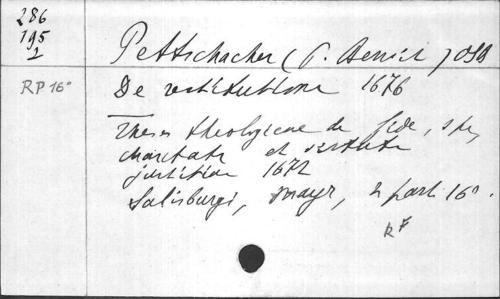 286
195
2
RP 16°
Pettschacher (P. Henrici) OSB
De restitutione 1676
Theses theologicae de fide, spe,
charitate et virtute
justitiae 1672
Salisburgi, Mayr, 2 part 16°.
RF